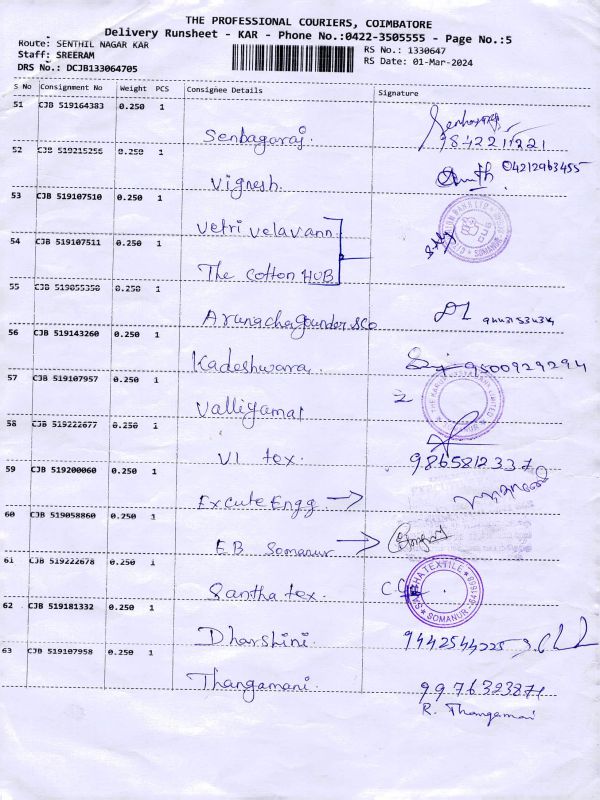 THE PROFESSIONAL COURIERS, COIMBATORE
Delivery Runsheet - KAR - Phone No.:0422-3505555 - Page No.:5
Route: SENTHIL NAGAR KAR
RS No.: 1330647
Staff: SREERAM
RS Date: 01-Mar-2024
DRS No.: DCJB133064705
S No Consignment No Weight PCS Consignee Details Signature
51 CJB 519164383 0.250 1
Senbagaraj. 9842211221
52 CJB 519215256 0.250 1
Vignesh. 04212963455
53 CJB 519107510 0.250 1
Vetri Velavann
54 CJB 519107511 0.250 1
The Cotton HUB
SOMANUR
55 CJB 519055350 0.250 1
Arunachagounder &Co
56 CJB 519143260 0.250 1
Kadeshwara. 9500929294
57 CJB 519107957 0.250 1
Valligamai
58 CJB 519222677 0.250 1
VI tex. 9865812337
59 CJB 519200060 0.250 1
Excute Engg
60 CJB 519058860 0.250 1
E.B Somanur
61 CJB 519222678 0.250 1
Santha tex.
TEXTILE SOMANUR
62 CJB 519181332 0.250 1
Dharshini. 9442544225
63 CJB 519107958 0.250 1
Thangamani. 9976323871
R. Thangamai